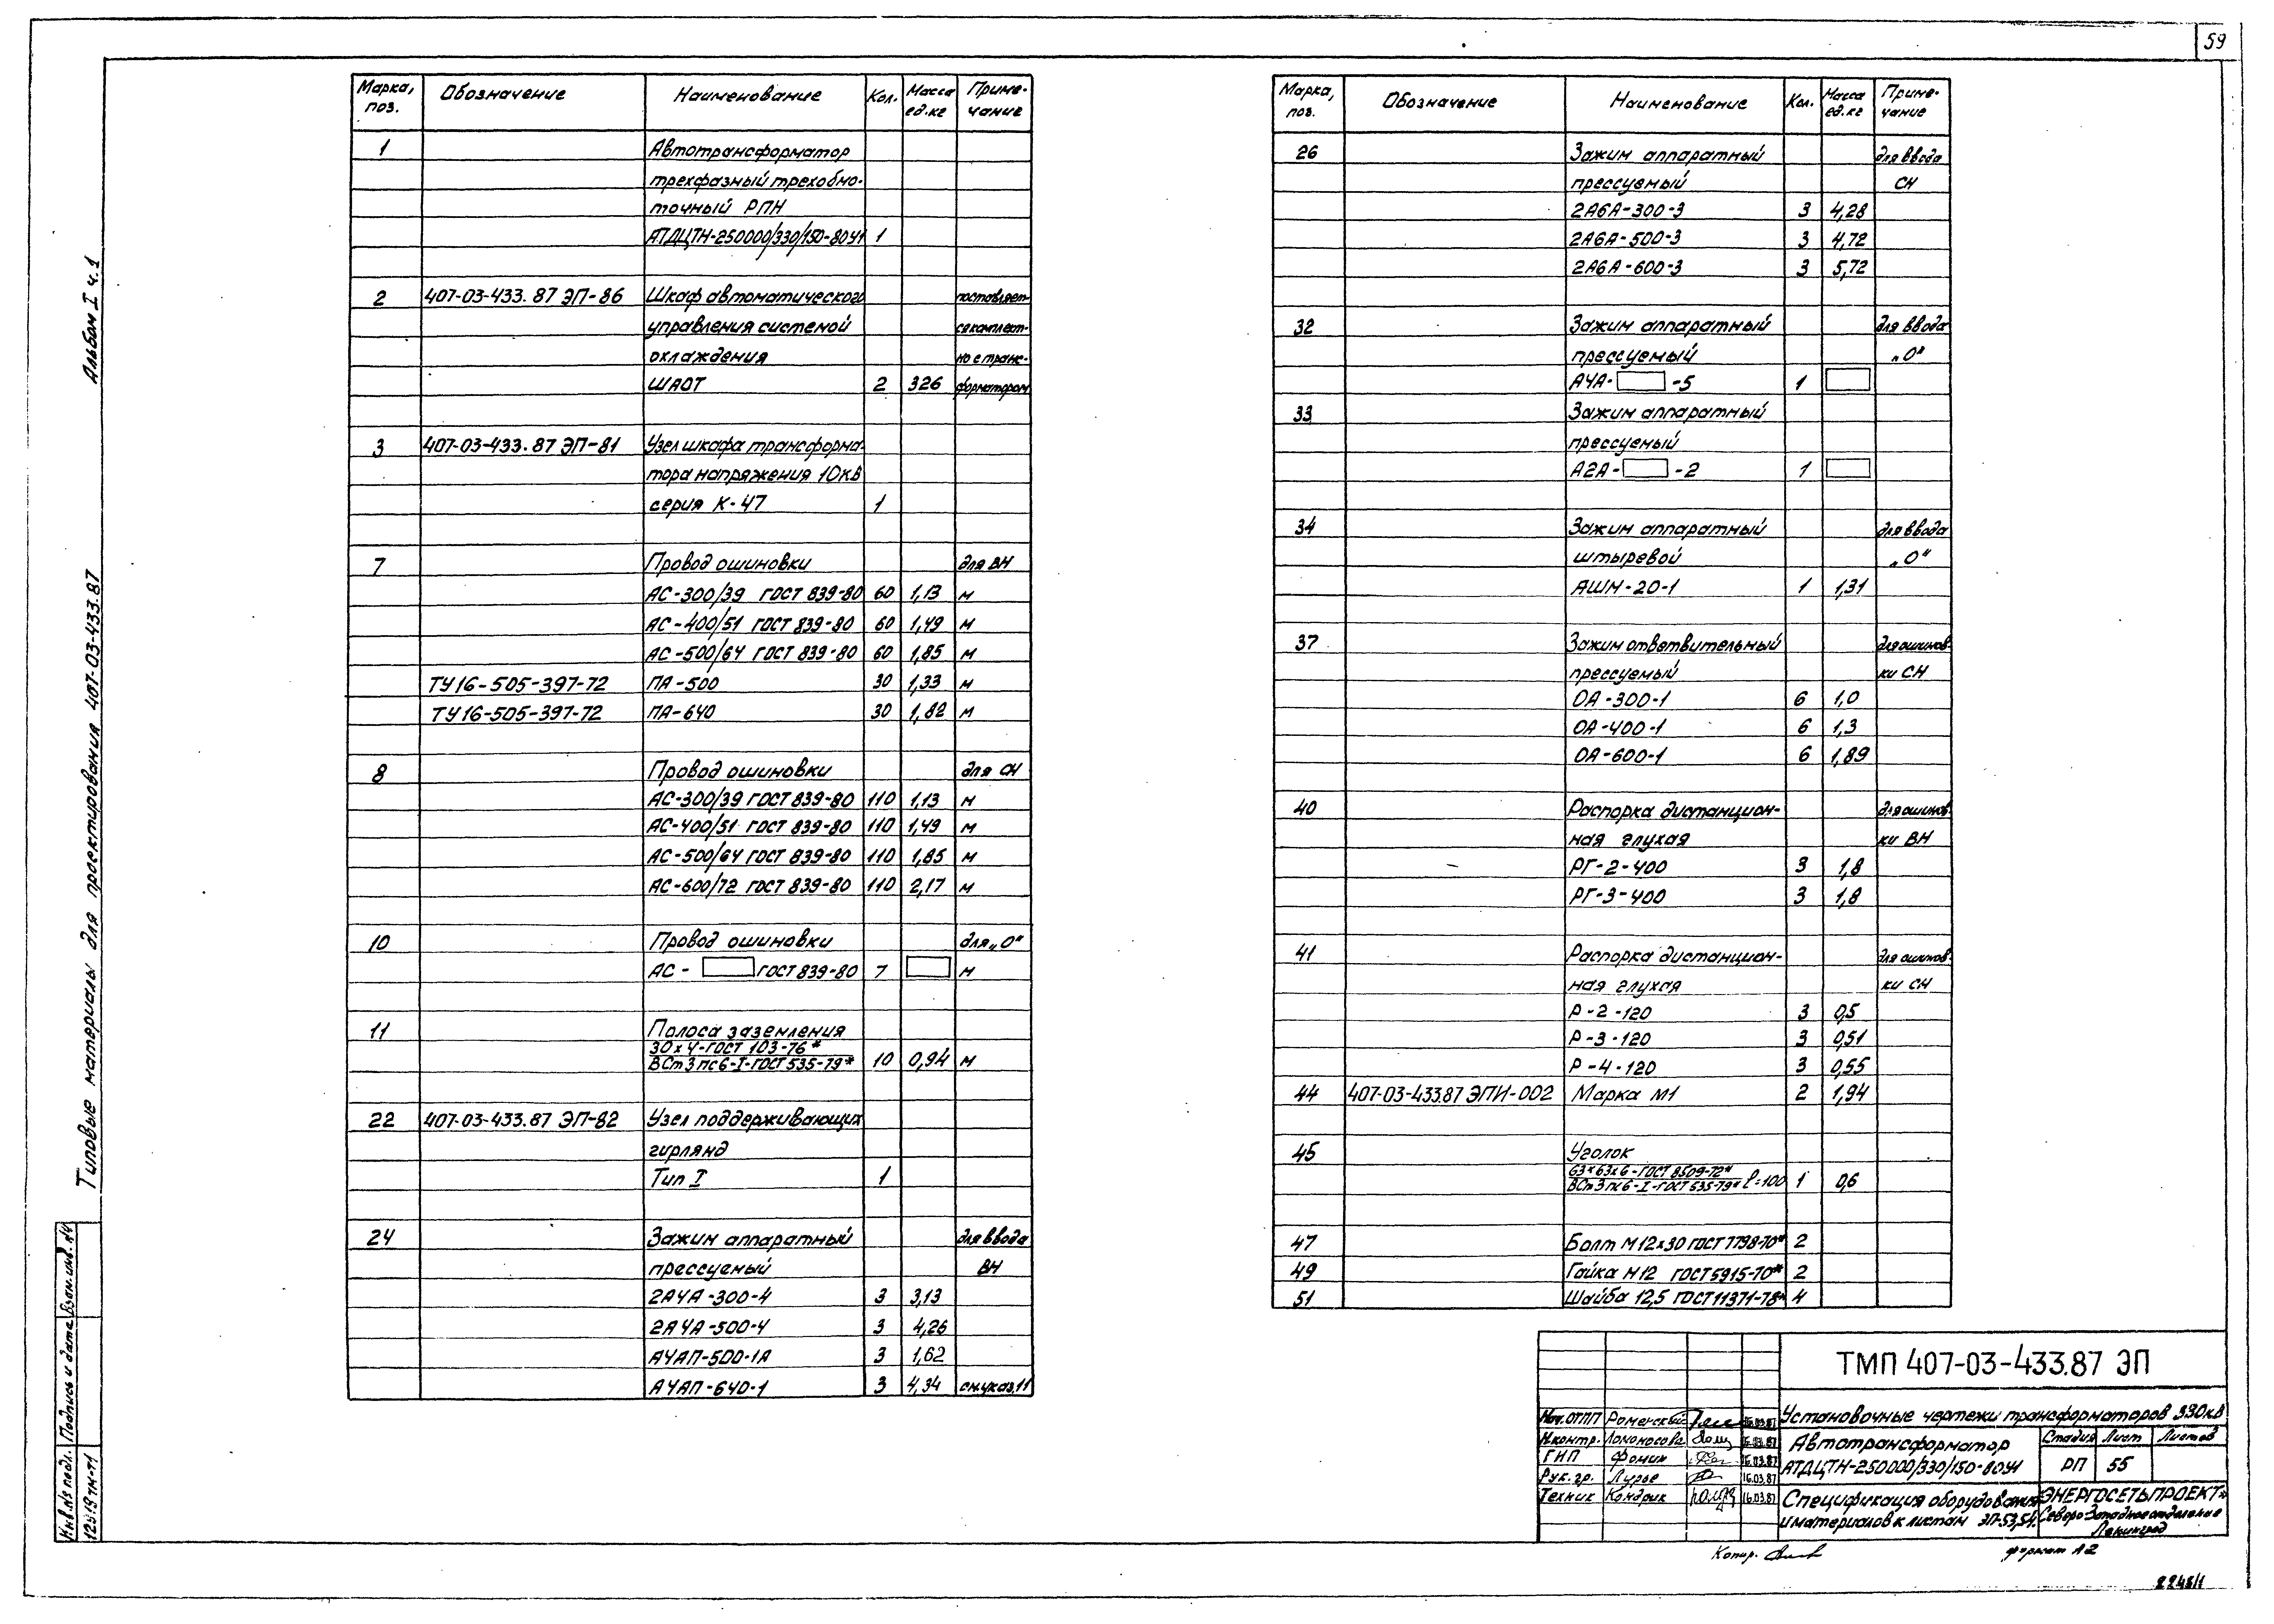 59
Альбом I ч.1
Типовые материалы для проектирования 407-03-433.87
Марка, поз. Обозначение Наименование Кол. Масса ед.кг Приме-чание
1 Автотрансформатор
трехфазный трехобмо-
точный РПН
АТДЦТН-250000/330/150-80У1 1
2 407-03-433.87 ЭП-86 Шкаф автоматического поставляет-
управления системой ся комплект-
охлаждения но с транс-
ШАОТ 2 326 форматором
3 407-03-433.87 ЭП-81 Узел шкафа трансформа-
тора напряжения 10кв
серия К-47 1
7 Провод ошиновки для ВН
АС-300/39 ГОСТ 839-80 60 1,13 м
АС-400/51 ГОСТ 839-80 60 1,49 м
АС-500/64 ГОСТ 839-80 60 1,85 м
ТУ16-505-397-72 ПА-500 30 1,33 м
ТУ16-505-397-72 ПА-640 30 1,82 м
8 Провод ошиновки для СН
АС-300/39 ГОСТ 839-80 110 1,13 м
АС-400/51 ГОСТ 839-80 110 1,49 м
АС-500/64 ГОСТ 839-80 110 1,85 м
АС-600/72 ГОСТ 839-80 110 2,17 м
10 Провод ошиновки для „О"
АС- ГОСТ 839-80 7 м
11 Полоса заземления
30х4-ГОСТ 103-76*
ВСт3пс6-I-ГОСТ 535-79* 10 0,94 м
22 407-03-433.87 ЭП-82 Узел поддерживающих
гирлянд
Тип I 1
24 Зажим аппаратный для ввода
прессуемый ВН
2А4А-300-4 3 3,13
2А4А-500-4 3 4,26
А4АП-500-1А 3 1,62
А4АП-640-1 3 4,34 см.указ.11
Марка, поз. Обозначение Наименование Кол. Масса ед.кг Приме-чание
26 Зажим аппаратный для ввода
прессуемый СН
2А6А-300-3 3 4,28
2А6А-500-3 3 4,72
2А6А-600-3 3 5,72
32 Зажим аппаратный для ввода
прессуемый „О"
А4А- -5 1
33 Зажим аппаратный
прессуемый
А2А- -2 1
34 Зажим аппаратный для ввода
штыревой „О"
АШМ-20-1 1 1,31
37 Зажим ответвительный для ошинов-
прессуемый ки СН
ОА-300-1 6 1,0
ОА-400-1 6 1,3
ОА-600-1 6 1,89
40 Распорка дистанцион- для ошинов-
ная глухая ки ВН
РГ-2-400 3 1,8
РГ-3-400 3 1,8
41 Распорка дистанцион- для ошинов-
ная глухая ки СН
Р-2-120 3 0,5
Р-3-120 3 0,51
Р-4-120 3 0,55
44 407-03-433.87 ЭПИ-002 Марка М1 2 1,94
45 Уголок
63х63х6-ГОСТ 8509-72*
ВСт3пс6-I-ГОСТ 535-79* ℓ=100 1 0,6
47 Болт М12х30 ГОСТ 7798-70* 2
49 Гайка М12 ГОСТ 5915-70* 2
51 Шайба 12,5 ГОСТ 11371-78* 4
ТМП 407-03-433.87 ЭП
Нач.ОТПП Роменский 16.03.87 Установочные чертежи трансформаторов 330кв
Н.контр. Ломоносова 16.03.87
ГИП Фомин 16.03.87
Рук.гр. Лурье 16.03.87
Техник Кондрик 16.03.87
Автотрансформатор
АТДЦТН-250000/330/150-80У1
Стадия Лист Листов
РП 55
Спецификация оборудования
и материалов к листам ЭП-53,54.
ЭНЕРГОСЕТЬПРОЕКТ"
Северо-Западное отделение
Ленинград
Копир.
формат А2
Инв.№ подл. Подпись и дата Взам.инв.№
12919тм-т1